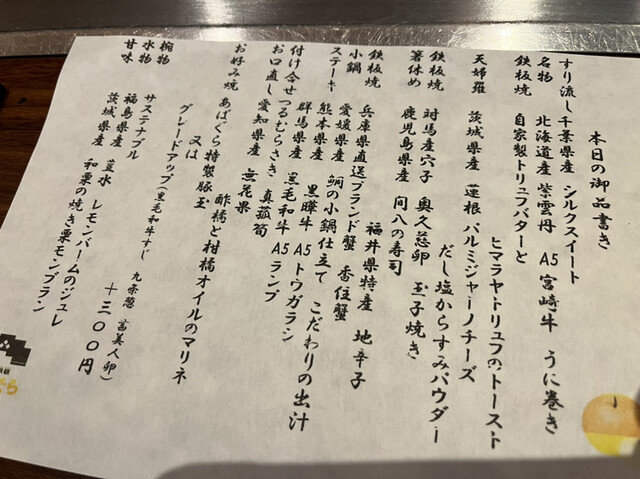 本日の御品書き
すり流し 千葉県産 シルクスイート
名物 北海道産 紫雲丹 A5宮崎牛 うに巻き
鉄板焼 自家製トリュフバターと
ヒマラヤトリュフのトースト
天婦羅 茨城県産 蓮根 パルミジャーノチーズ
だし塩からすみパウダー
鉄板焼 対馬産穴子 奥久慈卵 玉子焼き
箸休め 鹿児島県産 間八の寿司
鉄板焼 兵庫県直送ブランド蟹 香住蟹
福井県特産 地辛子
小鍋 愛媛県産 鯛の小鍋仕立て こだわりの出汁
ステーキ 熊本県産 黒毛和牛 A5トウガラシ
群馬県産 黒毛和牛 A5ランプ
付け合せ つるむらさき 真菰筍
お口直し 愛知県産 無花果
酢橘と柑橘オイルのマリネ
お好み焼 あばぐら特製豚玉
又は
グレードアップ(黒毛和牛すじ 九条葱 富美人卵)
+1300円
椀物 サステナブル
水物 福島県産 豊水 レモンバームのジュレ
甘味 茨城県産 和栗の焼き栗モンブラン
ぐら